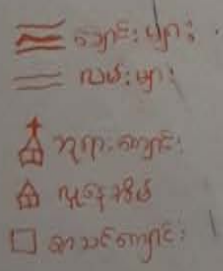 ချောင်းများ
လမ်းများ
ဘုရားကျောင်း
လူနေအိမ်
စာသင်ကျောင်း